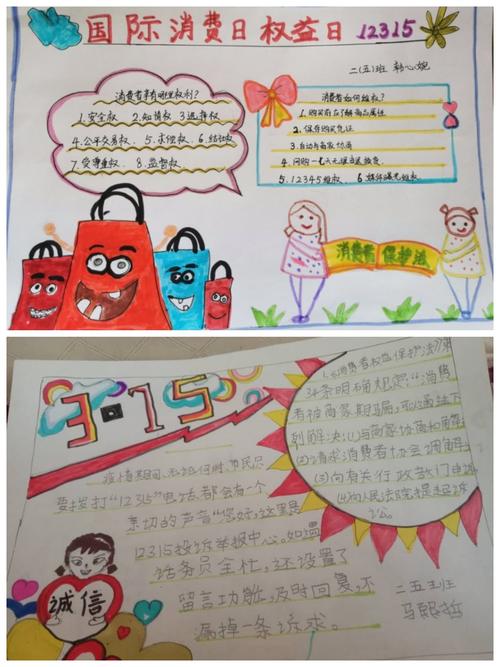 国际消费日权益日 12315
二(五)班 韩心婉
消费者享有哪些权利?
1.安全权 2.知情权 3选择权
4.公平交易权、5.求偿权、6.结社权
7.受尊重权、8.监督权
消费者如何维权?
1.购买前应了解商品属性
2.保存购买凭证
3.自动与商家协商
5.12345维权 6媒体曝光维权
消费者 保护法
3·15
疫情期间,无论何时,市民只
要拨打"12315"电话,都会有一个
亲切的声音"您好,这里是
12315投诉举报中心。如遇
话务员全忙,还设置了
留言功能,及时回复,不
漏掉一条诉求。
诚信
《消费者权益保护法》第
34条明确规定:"消费
者被商家期骗,可以通过下
列解决:(1)与商家协商和解
(2)请求消费者协会调解
(3)向有关行政部门申诉
(4)向人民法院提起诉
讼。
二五班
马熙哲